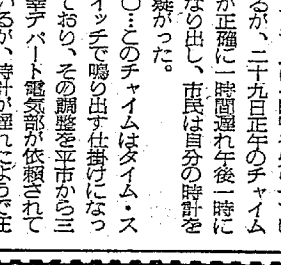 るが、二十九日正午のチャイム
が正確に一時間遅れ午後一時に
なり出し、市民は自分の時計を
疑がった。
○…このチャイムはタイム・ス
イッチで鳴り出す仕掛けになっ
ており、その調整を平市から三
幸デパート電気部が依頼されて
いるが、時計が遅れたようで